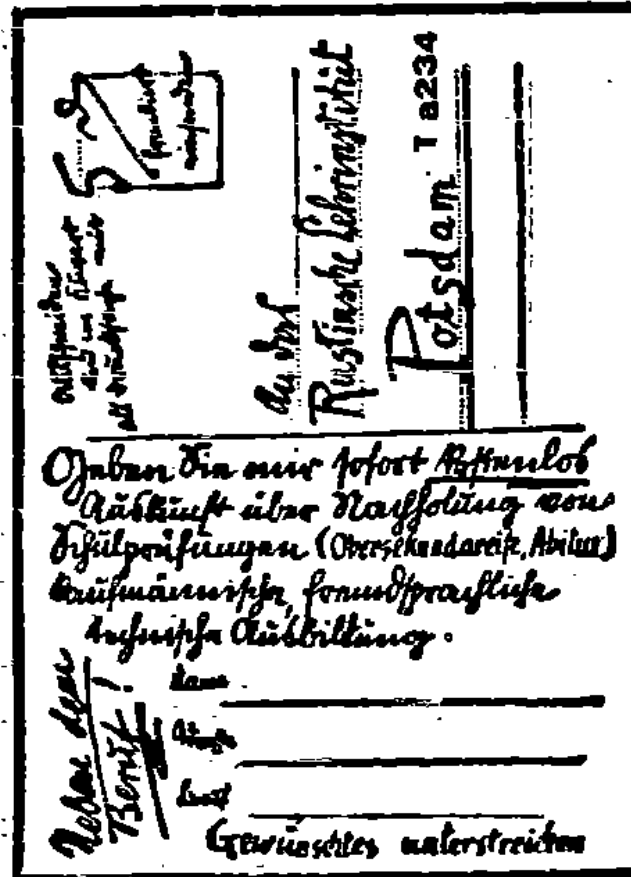 ausschneiden
und im Kuvert
als Drucksache
5 ₰
frankiert
An das
Rustinsche Lehrinstitut
Potsdam T a234
Geben Sie mir sofort kostenlos
Auskunft über Nachholung von
Schulprüfungen (Obersekundareife, Abitur)
kaufmännische, fremdsprachliche
technische Ausbildung.
Neben dem
Beruf!
Name
Ort
Gewünschtes unterstreichen